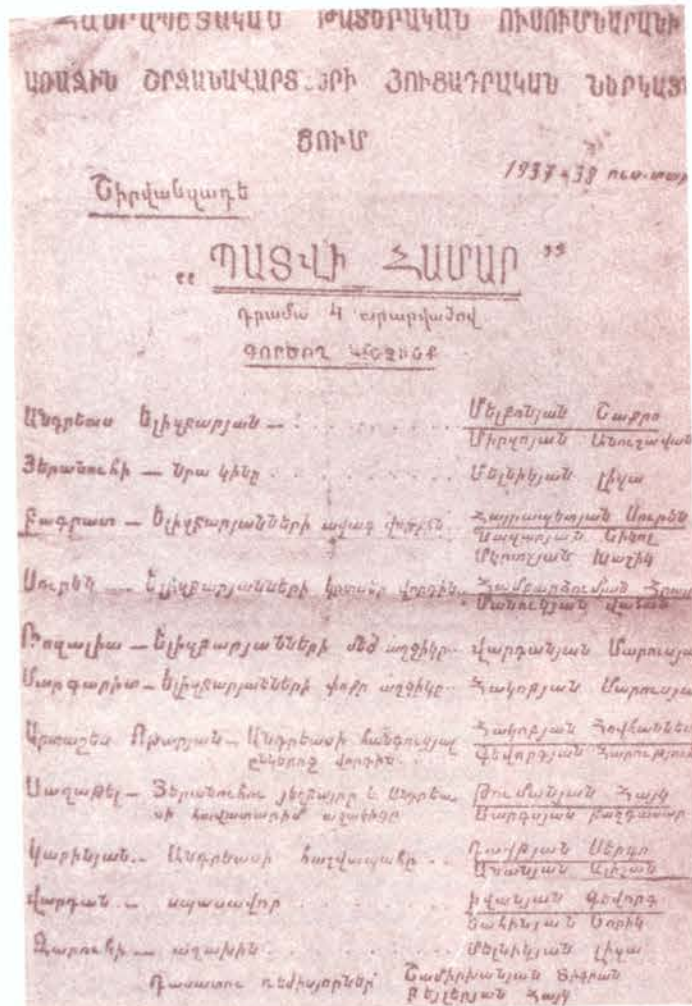 ՀԱՆՐԱՊԵՏԱԿԱՆ ԹԱՏԵՐԱԿԱՆ ՈՒՍՈՒՄՆԱՐԱՆԻ
ԱՌԱՋԻՆ ՑՈՒՑԱԴՐԱԿԱՆ ՆԵՐԿԱՅԱ
ՑՈՒՄ
1937-38 ուս. տար
Շիրվանզադե
„ ՊԱՏՎԻ ՀԱՄԱՐ ”
դրամա 4 արարվածով
ԳՈՐԾՈՂ ԱՆՁԻՆՔ
Անդրեաս Ելիզբարյան – Մելքոնյան Շաքրո
Միրզոյան Անուշավան
Յերանուհի – նրա կինը Մելնիկյան Լիզա
Բագրատ – Ելիզբարյանների ավագ վորդին Հայրապետյան Սուրեն
Նիկոլ
Մկրտչյան Խաչիկ
Սուրեն – Ելիզբարյանների կրտսեր վորդին Համբարձումյան
Մանուկյան Վահան
Ռոզալիա – Ելիզբարյանների մեծ աղջիկը Վարդանյան Մարուսյա
Մարգարիտ – Ելիզբարյանների փոքր աղջիկը Հակոբյան Մարուսյա
Արտաշես Օթարյան – Անդրեասի հանգուցյալ Հակոբյան Հովհաննես
ընկերոջ վորդին Գեվորգյան Հարություն
Սաղաթել – Յերանուհու յեղբայրը և Անդրեա- Թումանյան Հայկ
սի հավատարիմ աշակիցը Սարգսյան Բաղդասար
Կարինյան – Անդրեասի հաշվապահը Դավթյան Սերգո
Ալիշան
Վարդան – սպասավոր Իվանյան Գեվորգ
Շահինյան Նորիկ
Զարուհի – աղախին Մելնիկյան Լիզա
Դասատու ռեժիսյորներ՝ Շամիրխանյան Տիգրան
Բեյլերյան Հայկ